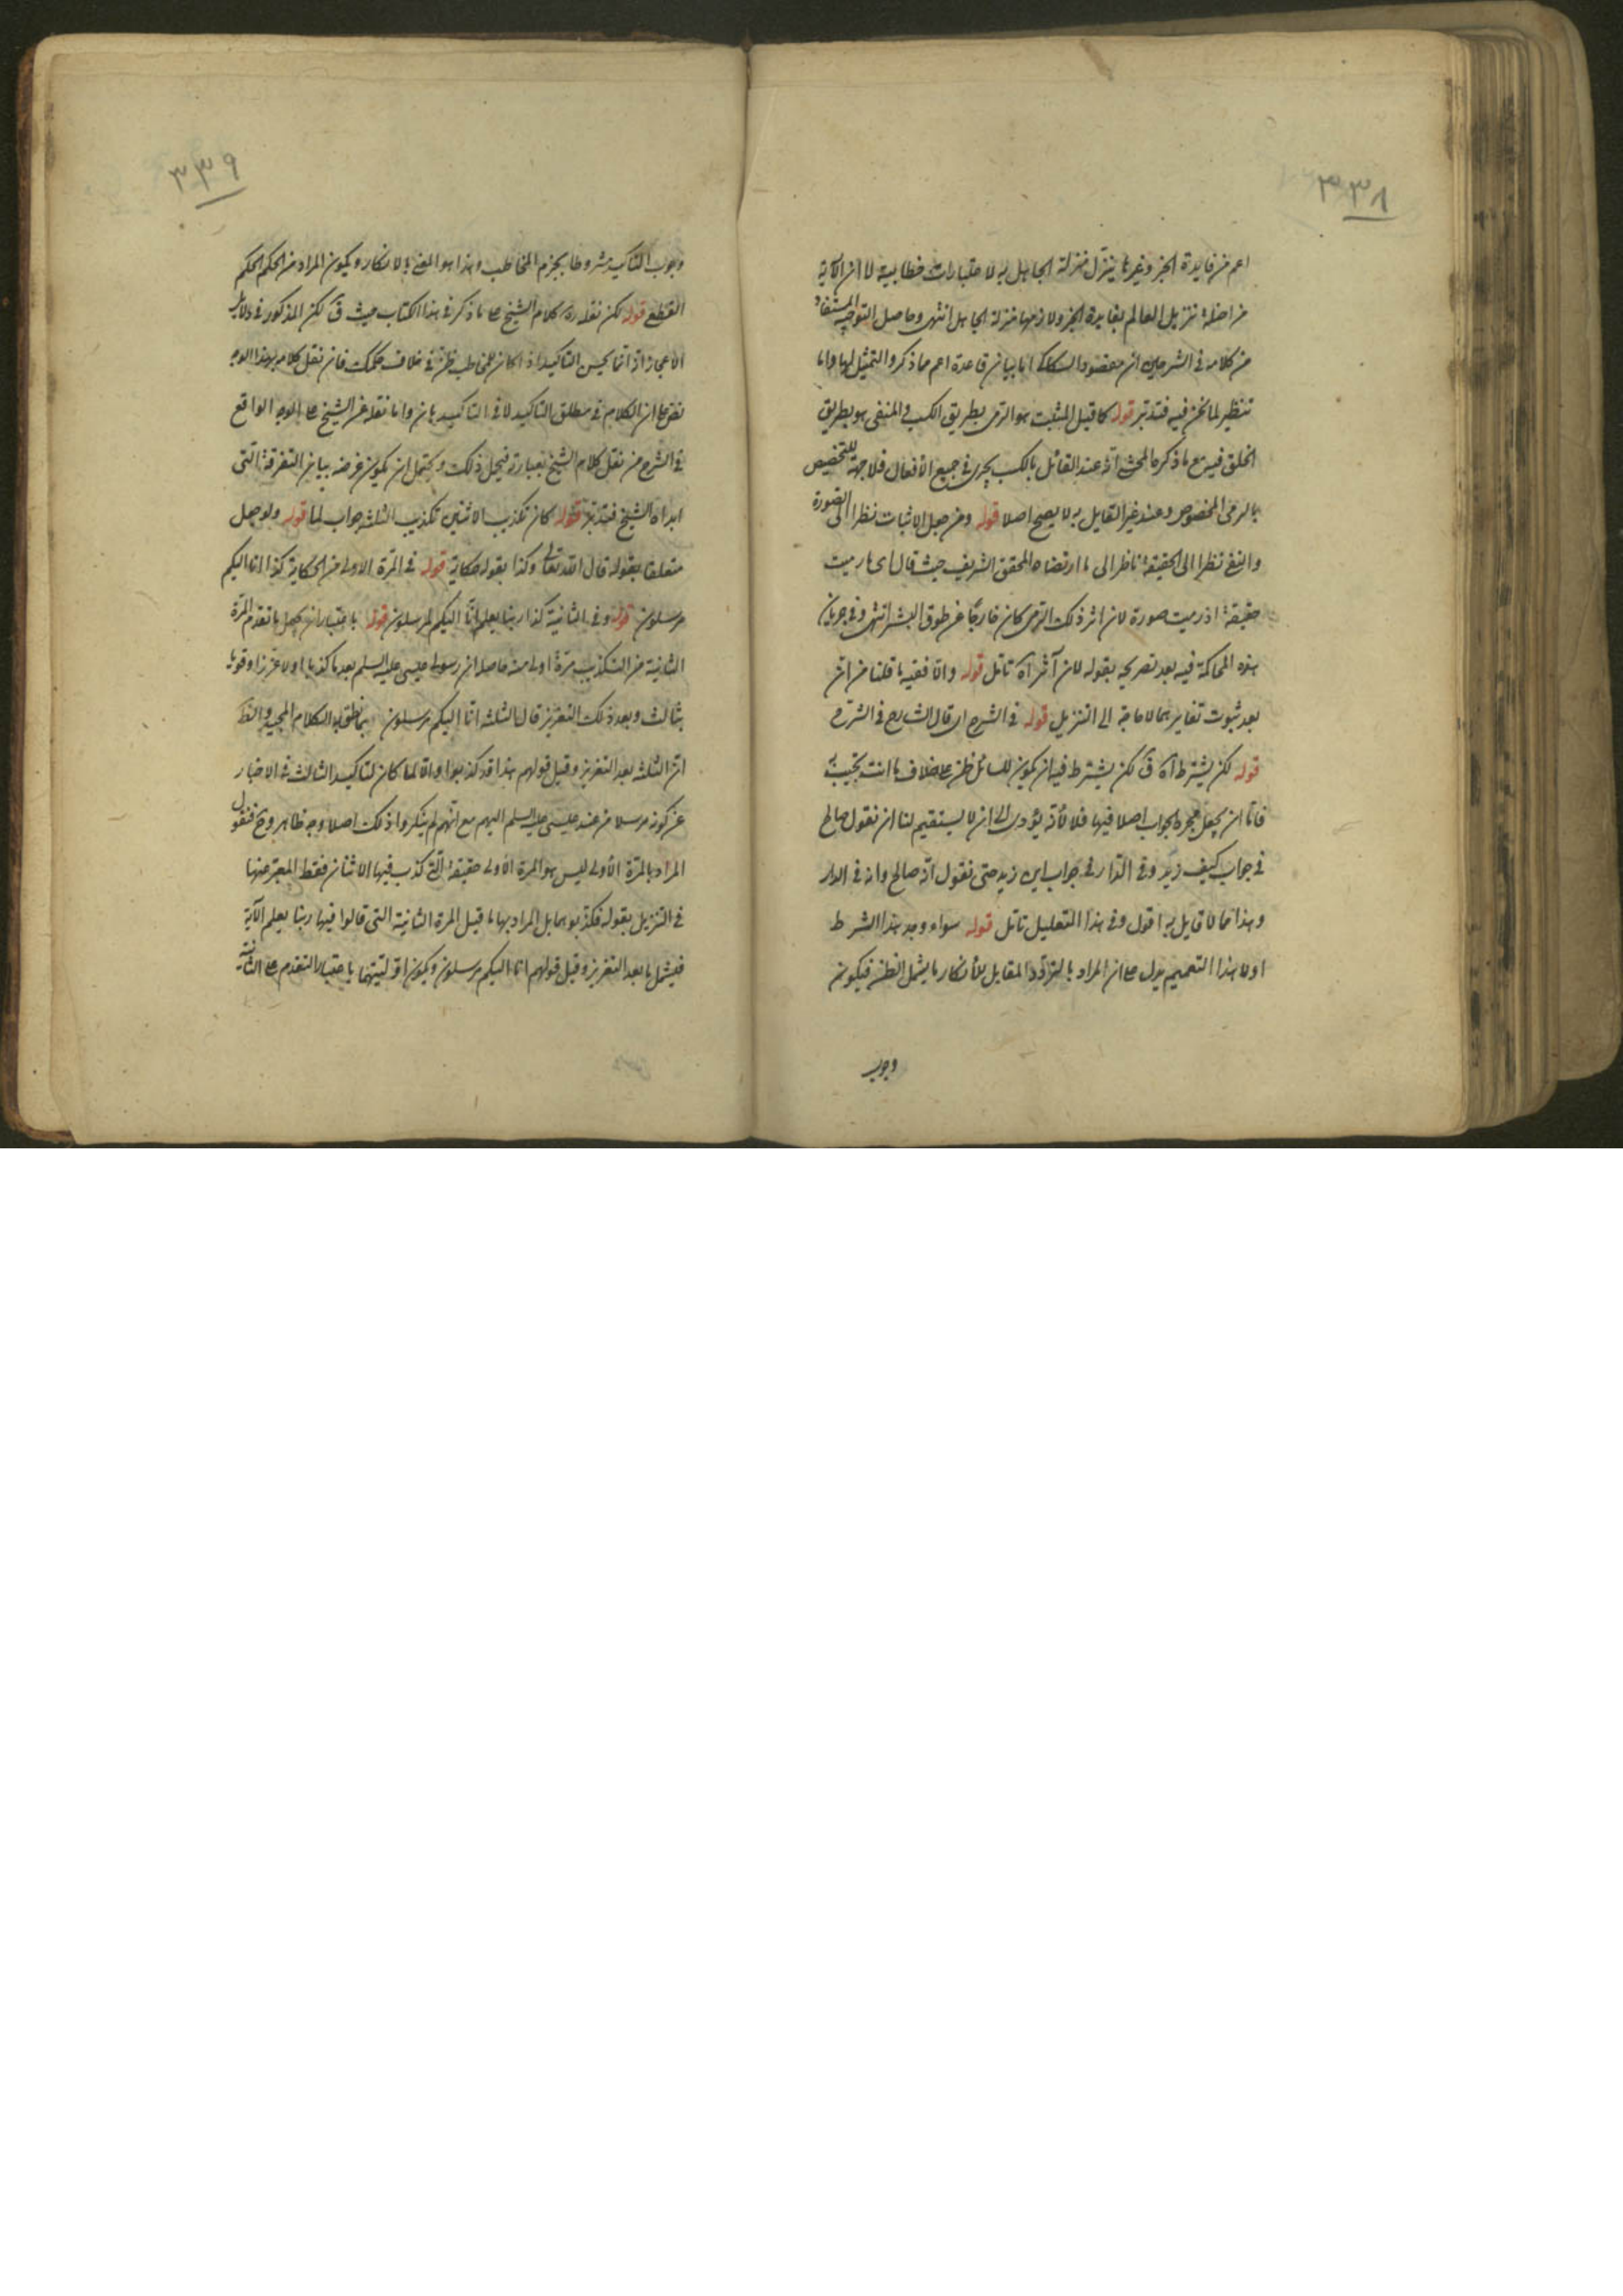 ٣٣٨
اعم من فايدة الخبر وغيرها ينزل منزلة الجاهل به لاعتبارات خطابية لا ان الآية
من امثلة تنزيل العالم بفايدة الخبر ولازمها منزلة الجاهل انتهى وحاصل التوجيه المستفاد
من كلامه في الشرحين ان مقصود السكاكي اما بيان قاعدة اعم مما ذكر والتمثيل لها واما
تنظير لما نحن فيه فتدبر قوله كما قيل المثبت هو الرمى بطريق الكسب والمنفى هو بطريق
الخلق فيه مع ما ذكره المحشى انه عند القائل بالكسب يجرى في جميع الأفعال فلا جهة للتخصيص
بالرمى المخصوص وعند غير القايل به لا يصح اصلا قوله ومن جعل الاثبات نظرا الى الصورة
والنفى نظرا الى الحقيقة ناظر الى ما ارتضاه المحقق الشريف حيث قال اى ما رميت
حقيقة اذ رميت صورة لان اثر ذلك الرمى كان خارجا عن طوق البشر انتهى وفي جريان
هذه المحاكمة فيه بعد تصريحه بقوله لان أثر آه تامل قوله واما ففيه ما قلنا من ان
بعد ثبوت تغايرهما لا حاجة الى التنزيل قوله في الشرح اى قال الشارح في الشرح
قوله لكن يشترط آه ق لكن يشترط فيه ان يكون للسائل ظن على خلاف ما انت تجيبه
فاما ان يجعل مجرد الجواب اصلا فيها فلا لأنه يؤدى الى ان لا يستقيم لنا ان نقول صالح
في جواب كيف زيد وفي الدار في جواب اين زيد حتى نقول انه صالح وانه في الدار
وهذا مما لا قايل به اقول وفي هذا التعليل تامل قوله سواء وجد هذا الشرط
او لا هذا التعميم يدل على ان المراد بالتردد المقابل للأنكار ما يشمل الظن فيكون
وجوب
٣٣٩
وجوب التاكيد مشروطا بجزم المخاطب وهذا هو المعنى بالانكار ويكون المراد من الحكم الحكم
القطع قوله لكن نقله ره كلام الشيخ على ما ذكر في هذا الكتاب حيث ق لكن المذكور في دلايل
الاعجاز انه انما يحسن التاكيد اذا كان للمخاطب ظن في خلاف حكمك فان نقل كلامه بهذا الوجه
نص على ان الكلام في مطلق التاكيد لا في التاكيد بان واما نقله عن الشيخ على الوجه الواقع
في الشرح من نقل كلام الشيخ بعبارته فيحتمل ذلك ويحتمل ان يكون غرضه بيان التفرقة التى
ابداه الشيخ فتدبر قوله كان تكذيب الاثنين تكذيب الثلثة جواب لما قوله ولو جعل
متعلقا بقوله قال الله تعالى وكذا بقوله حكاية قوله في المرة الاولى من الحكاية كذا انا اليكم
مرسلون قوله وفي الثانية كذا ربنا يعلم انا اليكم لمرسلون قوله باعتبار ان يجعل ما تقدم المرة
الثانية من التكذيب مرة اولى منه حاصله ان رسولى عيسى عليه السلم بعد ما كذبا اولا عززا وقويا
بثالث وبعد ذلك التعزيز قال الثلثة انا اليكم مرسلون بما نطق به الكلام المجيد والظ
ان الثلثة بعد التعزيز وقبل قولهم هذا قد كذبوا والا لما كان لتاكيد الثالث في الاخبار
عن كونه مرسلا من عند عيسى عليه السلم اليهم مع انهم لم ينكروا ذلك اصلا وجه ظاهر وح فنقول
المراد بالمرة الأولى ليس هو المرة الأولى حقيقة التى كذب فيها الاثنان فقط المعبر عنها
في التنزيل بقوله فكذبوهما بل المراد بها ما قبل المرة الثانية التى قالوا فيها ربنا يعلم الآية
فيشمل ما بعد التعزيز وقبل قولهم انا اليكم مرسلون ويكون اوليتهما باعتبار التقدم على الثانية